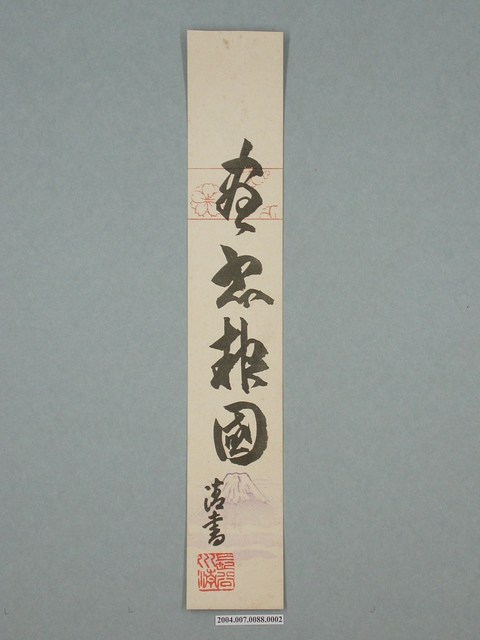 盡忠報國
清書
2004.007.0088.0002